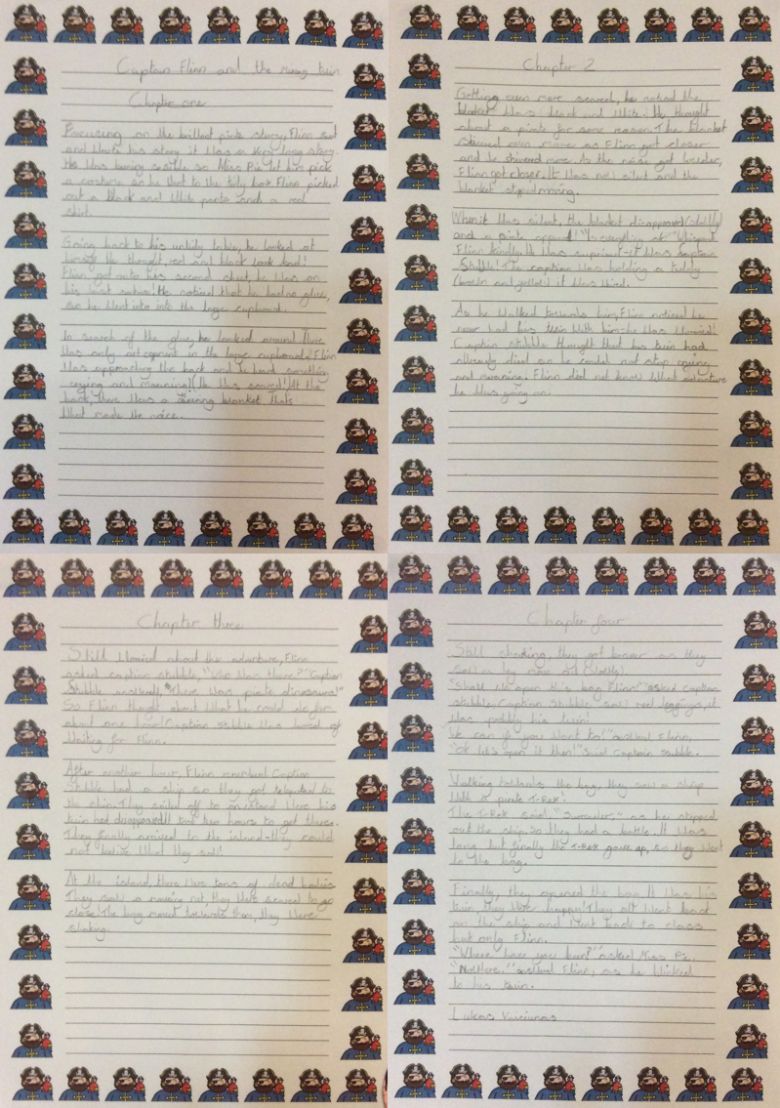 Captain Flinn and the missing twin
Chapter one
Focusing on the brillant pirate story, Flinn sat
and wrote his story it was a very long story.
He was being sesible so Miss Pie let him pick
a costume so he that to the tidy box Flinn picked
out a black and white pants and a red
shirt.
Going back to his untidy table, he looked at
himself. He thought, red and black look bad!
Flinn got onto his second sheet, he was on
his last subies! He noticed that he had no glue,
so he went into into the large cupboard.
In search of the glue, he looked around. There
was only art equipment in the large cupboard. Flinn
was approaching the back and he heard something
(crying and moaning). He was scared! At the
back, there was a shivering blanket thats
what made the noice.
Chapter 2
Getting even more scared, he noticed the
blanket was black and white. He thought
about a pirate for some reason. The blanket
shivered even more as Flinn got closer
and he shivered more. As the noise got louder,
Flinn got closer. It was now silent and the
blanket stopped moving.
When it was silent, the blanket disappeared (slowly)
and a pirate appeared! "Is everything ok" whisperd
Flinn kindly. He was suprised-it was captain
Stubble! The captain was holding a teddy
(brown and yellow) it was tired.
As he walked towards him, Flinn noticed he
never had his twin with him-he was worried!
Captain stubble thought that his twin had
already died so he could not stop crying
and moaning. Flinn did not know what adventure
he was going on.
Chapter three
Still worried about the adventure, Flinn
asked captain stubble, "who was there?" "Captain
Stubble answered, "There was pirate dinosaurs!"
So Flinn thought about what he could do for
about one hour! Captain stubble was bored of
waiting for Flinn.
After another hour, Flinn rememberd Captain
Stubble had a ship so they got teleported to
the ship. They sailed off to an island were his
twin had disappeared! It took two hours to get there.
They finally arrived in the island-they could
not belive what they saw!
At the island, there were tons of dead bodies
They saw a moving net, they were scared to go
close. The bag moved towards them, they were
shaking.
Chapter four
Still shaking, they got braver as they
saw a leg come out (slowly).
"Shall we open this bag Flinn?" asked captain
stubble. Captain Stubble saw red leggings, it
was probbly his twin!
We can if you want to!" answerd Flinn,
"OK let's open it then!" said Captain stubble.
Walking towards the bag, they saw a ship
with a pirate T-Rex.
The T-Rex said "Surrender," as he stepped
out the ship. So they had a battle. It was
long but finally the T-Rex gave up, so they went
to the bag.
Finally, they opened the bag. It was his
twin, they were happy! They all went back
on the ship and went back to class
but only Flinn.
"Where have you been?" asked Miss Pie.
"Nowhere," answerd Flinn, as he winked
to his twin.
Lukas